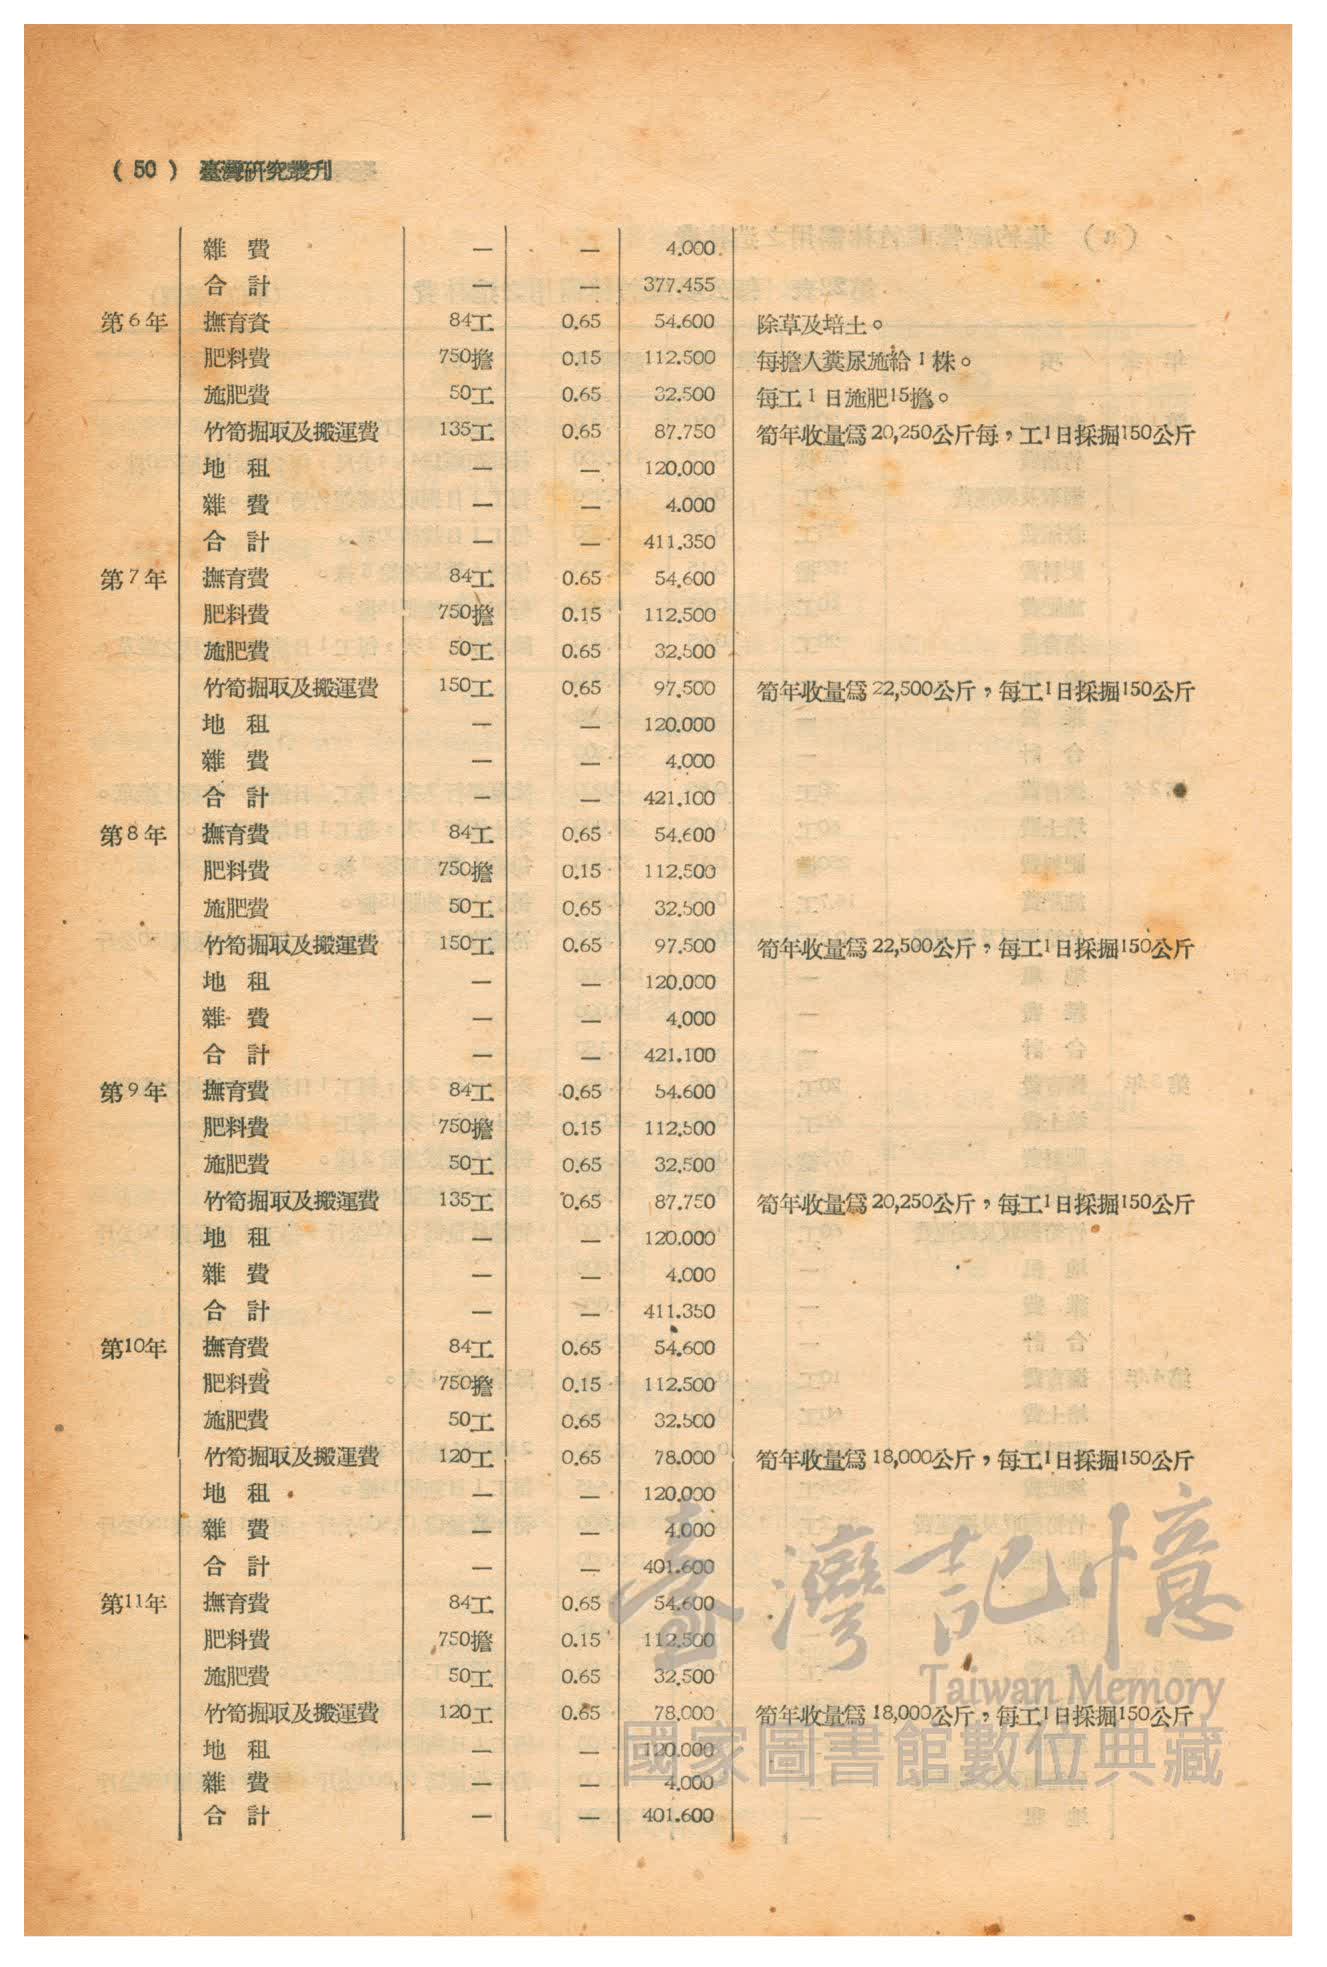 ( 50 ) 臺灣研究叢刊
雜 費 — — 4.000
合 計 — — 377.455
第6年 撫育資 84工 0.65 54.600 除草及培土。
肥料費 750擔 0.15 112.500 每擔人糞尿施給1株。
施肥費 50工 0.65 32.500 每工1日施肥15擔。
竹筍掘取及搬運費 135工 0.65 87.750 筍年收量爲20,250公斤每,工1日採掘150公斤
地 租 — — 120.000
雜 費 — — 4.000
合 計 — — 411.350
第7年 撫育費 84工 0.65 54.600
肥料費 750擔 0.15 112.500
施肥費 50工 0.65 32.500
竹筍掘取及搬運費 150工 0.65 97.500 筍年收量爲22,500公斤,每工1日採掘150公斤
地 租 — — 120.000
雜 費 — — 4.000
合 計 — — 421.100
第8年 撫育費 84工 0.65 54.600
肥料費 750擔 0.15 112.500
施肥費 50工 0.65 32.500
竹筍掘取及搬運費 150工 0.65 97.500 筍年收量爲22,500公斤,每工1日採掘150公斤
地 租 — — 120.000
雜 費 — — 4.000
合 計 — — 421.100
第9年 撫育費 84工 0.65 54.600
肥料費 750擔 0.15 112.500
施肥費 50工 0.65 32.500
竹筍掘取及搬運費 135工 0.65 87.750 筍年收量爲20,250公斤,每工1日採掘150公斤
地 租 — — 120.000
雜 費 — — 4.000
合 計 — — 411.350
第10年 撫育費 84工 0.65 54.600
肥料費 750擔 0.15 112.500
施肥費 50工 0.65 32.500
竹筍掘取及搬運費 120工 0.65 78.000 筍年收量爲18,000公斤,每工1日採掘150公斤
地 租 — — 120.000
雜 費 — — 4.000
合 計 — — 401.600
第11年 撫育費 84工 0.65 54.600
肥料費 750擔 0.15 112.500
施肥費 50工 0.65 32.500
竹筍掘取及搬運費 120工 0.65 78.000 筍年收量爲18,000公斤,每工1日採掘150公斤
地 租 — — 120.000
雜 費 — — 4.000
合 計 — — 401.600
臺灣記憶
Taiwan Memory
國家圖書館數位典藏